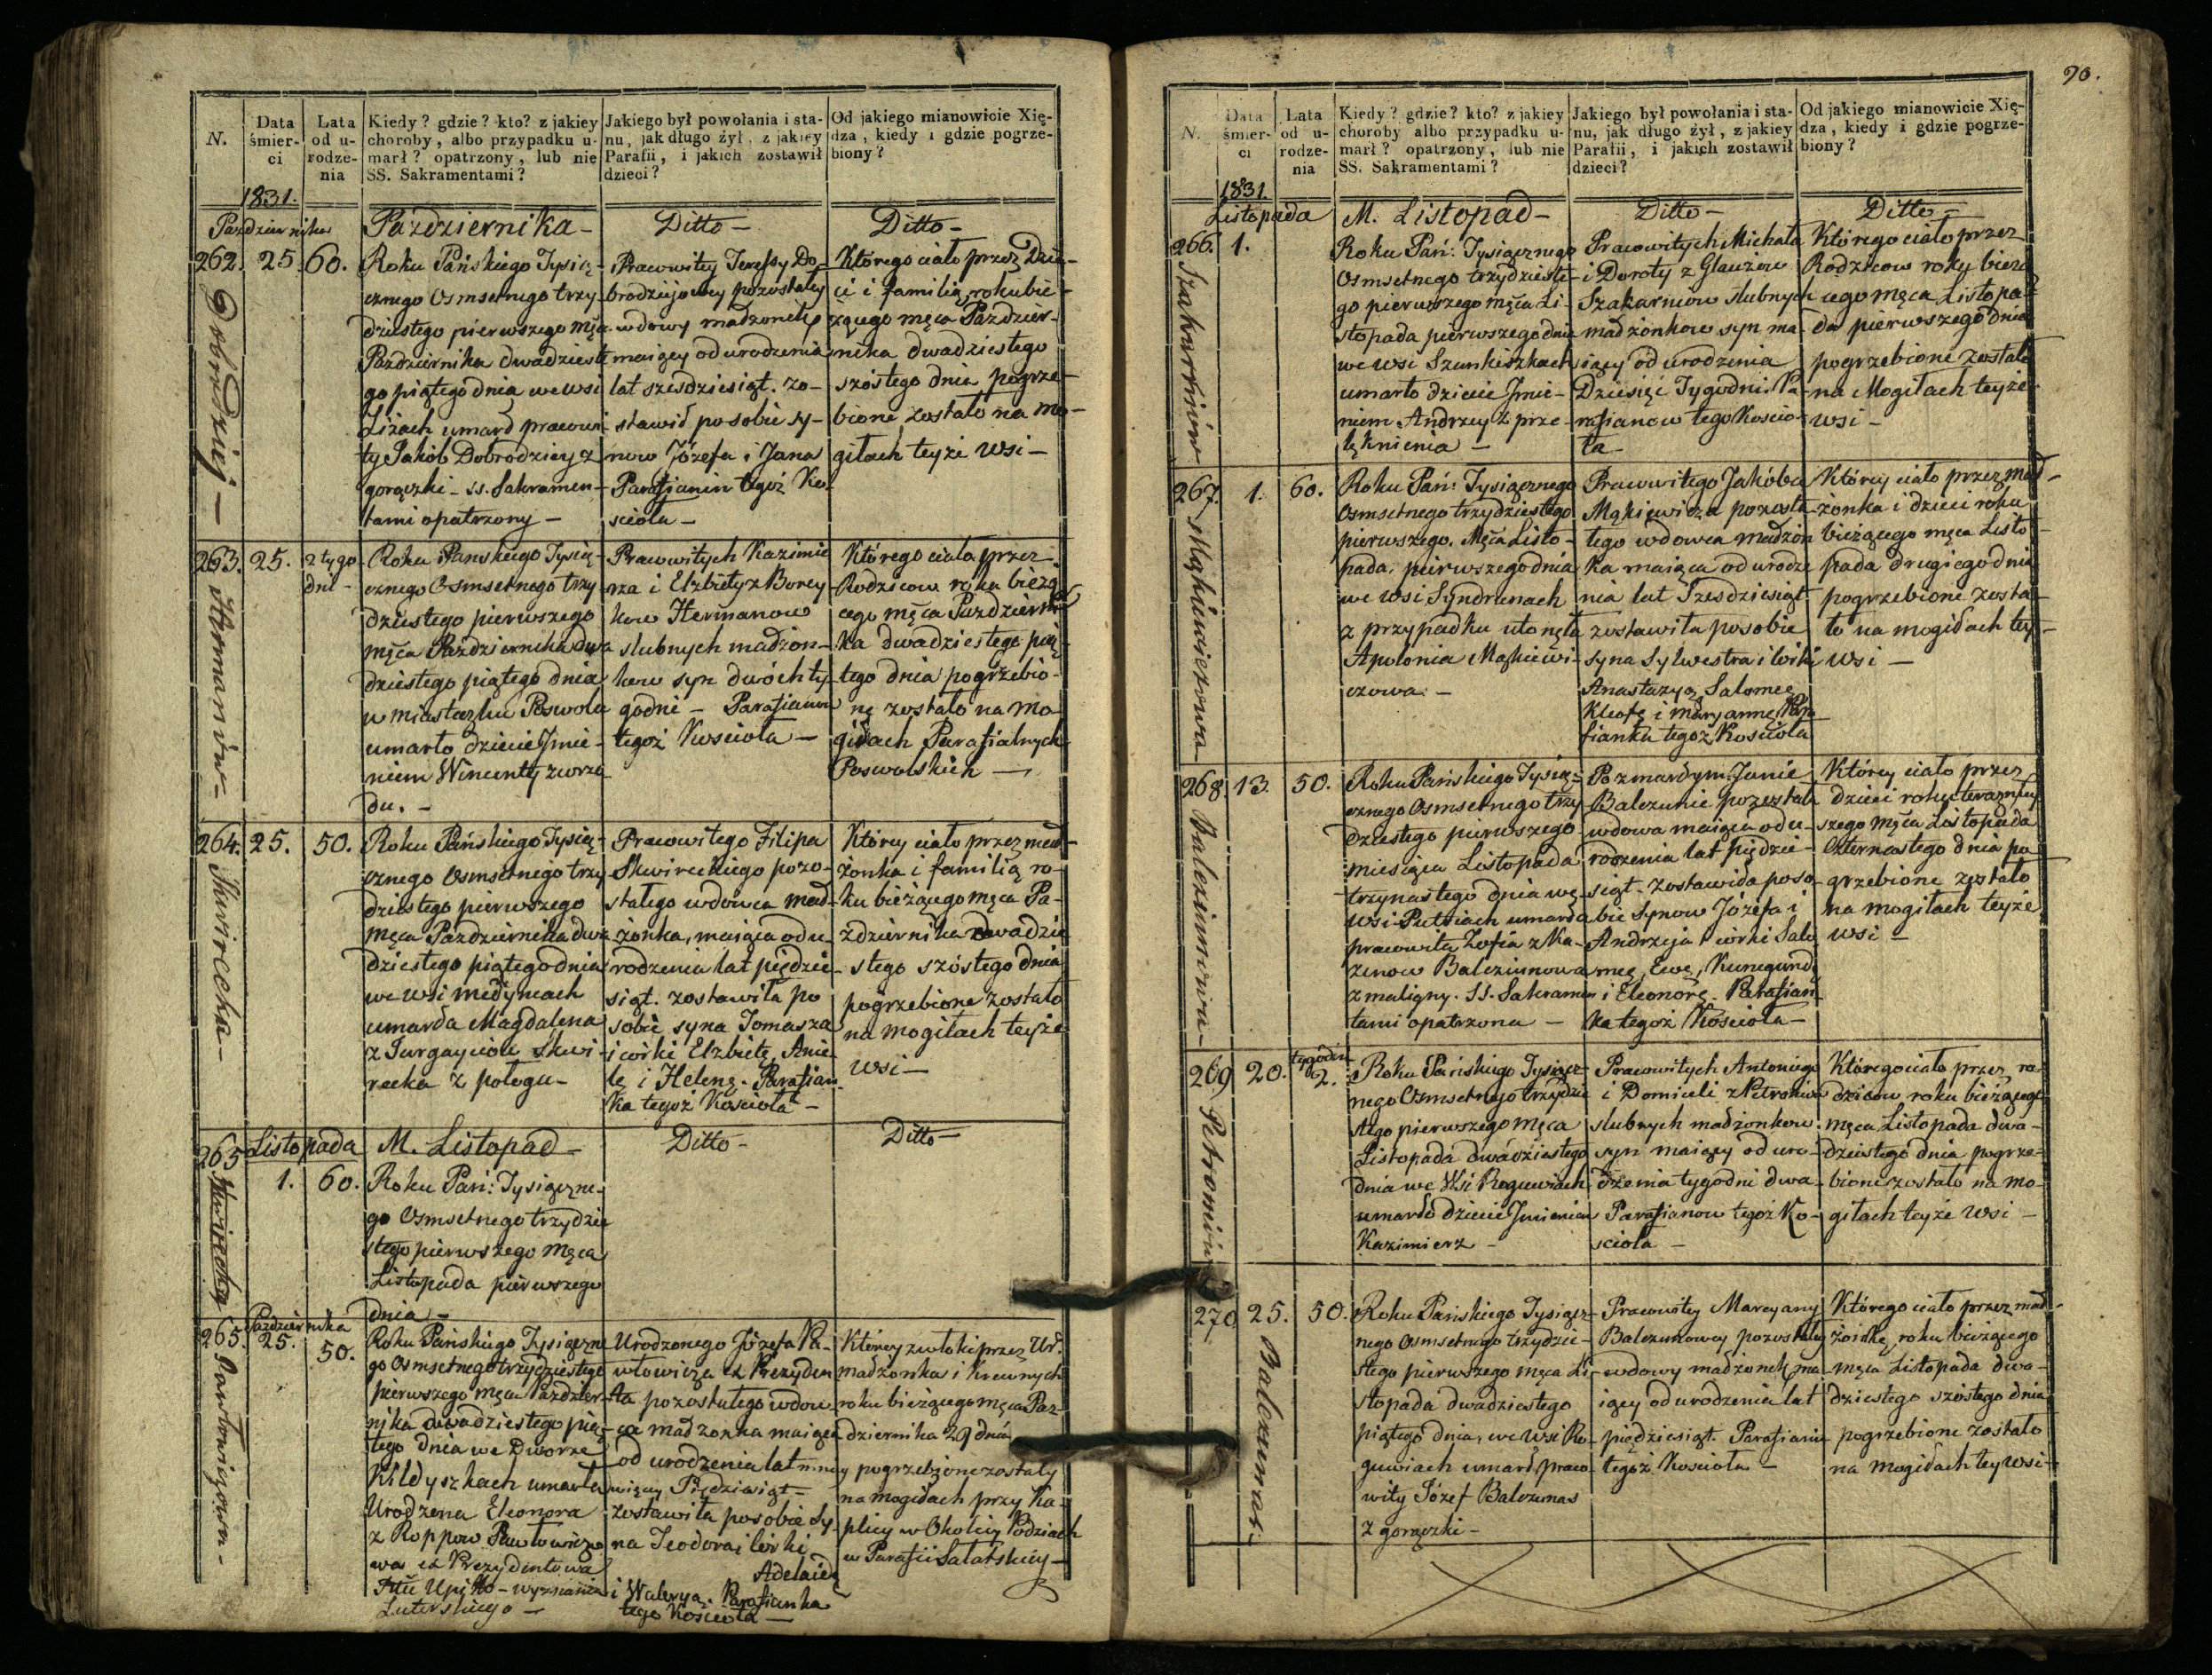 N.
Data śmier-ci
Lata od u-rodze-nia
Kiedy? gdzie? kto? z jakiey
choroby, albo przypadku u-
marł? opatrzony, lub nie
SS. Sakramentami?
Jakiego był powołania i sta-
nu, jak długo żył, z jakiey
Parafii, i jakich zostawił
dzieci?
Od jakiego mianowicie Xię-
dza, kiedy i gdzie pogrze-
biony?
1831.
Października
Października -
Ditto -
Ditto -
262.
25.
60.
Dobrodziej -
Roku Pańskiego Tysią-
cznego Osmsetnego trzy-
dziestego pierwszego męca
Października dwadzieste
go piątego dnia we wsi
Liżach umarł pracowi
ty Jakób Dobrodziey z
gorączki - SS. Sakramen-
tami opatrzony -
Pracowitey Teressy Do-
brodziejowey pozostałey
wdowy małżonek
maiący od urodzenia
lat sześdziesiąt. zo-
stawił po sobie sy-
now Józefa i Jana
Parafianin tegoż Ko-
scioła -
Którego ciało przez Dzie-
ci i familią roku bie-
żącego męca Paździer-
nika dwadziestego
szóstego dnia pogrze-
bione zostało na mo-
giłach teyże wsi -
263.
25.
2 tygo
dni -
Hermanów -
Roku Pańskiego Tysią-
cznego Osmsetnego trzy
dziestego pierwszego
męca Października dwa
dziestego piątego dnia
w miasteczku Poswolu
umarło dziecie Jmie-
niem Wincenty z wrzo
du. -
Pracowitych Kazimie
rza i Elżbiety z Borey
kow Hermanow
slubnych małżon-
kow syn dwóch ty-
godni - Parafianow
tegoż Kościoła -
Którego ciało przez
Rodzicow roku bieżą
cego męca Październi
ka dwadziestego pią-
tego dnia pogrzebio-
ne zostało na mo-
giłach Parafialnych
Poswolskich -
264.
25.
50.
Skwirecka -
Roku Pańskiego Tysią-
cznego Osmsetnego trzy
dziestego pierwszego
męca Października dwa
dziestego piątego dnia
we wsi Medyncach
umarła Magdalena
z Turgayciow Skwi-
recka z połogu -
Pracowitego Filipa
Skwireckiego pozo-
stałego wdowca mał-
żonka, maiąca od u-
rodzenia lat pięńdzie-
siąt. zostawiła po
sobie syna Tomasza
i córki Elżbietę, Anie
lę i Helenę. Parafian
ka tegoż Kościoła -
Którey ciało przez mał-
żonka i familią ro-
ku bieżącego męca Pa-
ździernika dwadzie
stego szóstego dnia
pogrzebione zostało
na mogiłach teyże
wsi -
265
Listopada
M. Listopad -
Ditto -
Ditto -
1.
60.
Roku Pań: Tysiączne-
go Osmsetnego trzydzie
stego pierwszego męca
Listopada pierwszego
dnia -
265.
Października
25.
50.
Roku Pańskiego Tysiączne
go Osmsetnego trzydziestego
pierwszego męca Paździer
nika dwadziestego pią-
tego dnia we Dworze
Kildyszkach umarła
Urodzona Eleonora
z Roppow Pawłowiczo
wa ex Prezydentowa
Pttu Upitto - wyznania
Luterskiego -
Urodzonego Józefa Pa-
włowicza ex Prezyden
ta pozostałego wdow-
ca małżonka maiąca
od urodzenia lat mney
więcey Pięńdziesiąt -
zostawiła po sobie sy-
na Teodora i córki
Adelaidę
i Waleryą. Parafianka
tego Kościoła -
Którey zwłoki przez Ur.
małżonka i Krewnych
roku bieżącego męca Paź-
dziernika 29 dnia
pogrzebione zostały
na mogiłach przy Ka-
plicy w Okolicy Podziach
w Parafii Sałatskiey -
90.
N.
Data śmier-ci
Lata od u-rodze-nia
Kiedy? gdzie? kto? z jakiey
choroby albo przypadku u-
marł? opatrzony, lub nie
SS. Sakramentami?
Jakiego był powołania i sta-
nu, jak długo żył, z jakiey
Parafii, i jakich zostawił
dzieci?
Od jakiego mianowicie Xię-
dza, kiedy i gdzie pogrze-
biony?
1831.
Listopada
M. Listopad -
Ditto -
Ditto -
266.
1.
Szakarniów
Roku Pań: Tysiącznego
Osmsetnego trzydzieste-
go pierwszego męca Li-
stopada pierwszego dnia
we wsi Szunkiszkach
umarło dziecie Jmie-
niem Andrzey z prze-
lęknienia -
Pracowitych Michała
i Doroty z Glauzow
Szakarniow slubnych
małżonkow syn ma-
iący od urodzenia
Dziesięć Tygodni. Pa-
rafianow tego Koscio-
ła -
Którego ciało przez
Rodzicow roku bieżą
cego męca Listopa-
da pierwszego dnia
pogrzebione zostało
na Mogiłach teyże
wsi -
267.
1.
60.
Mąkiewiczowa -
Roku Pań: Tysiącznego
Osmsetnego trzydziestego
pierwszego. Męca Listo-
pada, pierwszego dnia
we wsi Syndrunach
z przypadku utonęła
Apolonia Mąkiewi-
czowa. -
Pracowitego Jakóba
Mąkiewicza pozosta-
łego wdowca małżon
ka maiąca od urodze
nia lat Szesdziesiąt
zostawiła po sobie
syna Sylwestra i córki
Anastazyą, Salomeę
Kleofę i Maryannę, Para
fianka tegoż Kościoła
Którey ciało przez mał-
żonka i dzieci roku
bieżącego męca Listo-
pada drugiego dnia
pogrzebione zosta-
ło na mogiłach tey-
wsi -
268.
13.
50.
Balcziunowa -
Roku Pańskiego Tysią-
cznego Osmsetnego trzy-
dziestego pierwszego
miesiąca Listopada
trzynastego dnia we
wsi Putriach umarła
pracowita Zofia z Ka-
zenow Balcziunowa
z maligny. SS. Sakramen
tami opatrzona -
Po zmarłym Janie
Balczunie pozostała
wdowa maiąca od u-
rodzenia lat pięńdzie-
siąt. zostawiła po so-
bie Synow Józefa i
Andrzeja i córki Salo
meę, Ewę, Kunegundę
i Eleonorę. Parafian
ka tegoż Kościoła -
Którey ciało przez
dzieci roku teraźniey
szego męca Listopada
Czternastego dnia po
grzebione zostało
na mogiłach teyże
wsi -
269
20.
tygodni
2.
Petroniów
Roku Pańskiego Tysiącz-
nego Osmsetnego trzydzie
stego pierwszego męca
Listopada dwadziestego
dnia we Wsi Roguwiach
umarło dziecie Jmieniem
Kazimierz -
Pracowitych Antoniego
i Domiceli z Petroniow
slubnych małżonkow
syn maiący od uro-
dzenia tygodni dwa.
Parafianow tegoż Ko-
scioła -
Którego ciało przez ro-
dzicow roku bieżącego
męca Listopada dwa-
dziestego dnia pogrze-
bione zostało na mo-
giłach teyże wsi -
270
25.
50.
Balczunas -
Roku Pańskiego Tysiącz-
nego Osmsetnego trzydzie-
stego pierwszego męca Li-
stopada dwadziestego
piątego dnia, we Wsi Ro-
guwiach umarł praco
wity Józef Balczunas
z gorączki -
Pracowitey Maryany
Balczunowey pozostałey
wdowy małżonek ma
iący od urodzenia lat
pięńdziesiąt. Parafianin
tegoż Kościoła -
Którego ciało przez mał-
żonkę, roku bieżącego
męca Listopada dwa-
dziestego szóstego dnia
pogrzebione zostało
na mogiłach tey wsi -